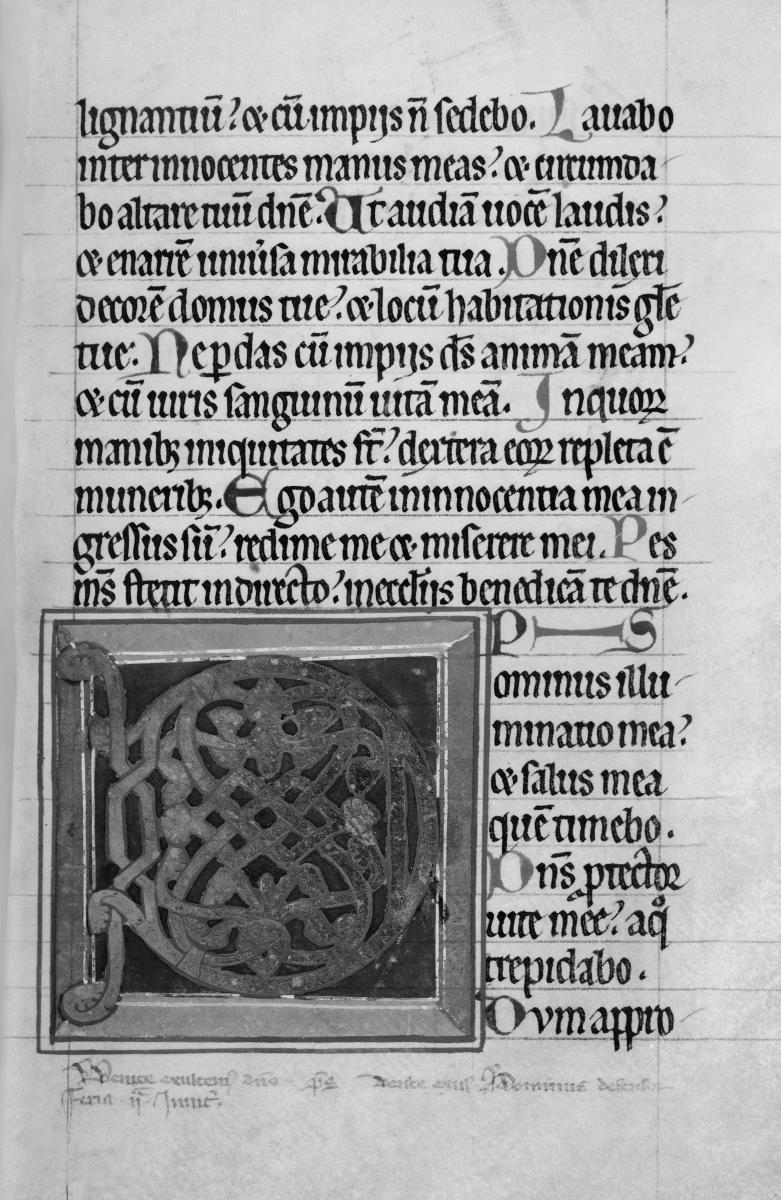 lignantiū? & cū impijs n̄ sedebo. Lauabo
inter innocentes manus meas? & circumda
bo altare tuū dn̄e? Ut audiā uocē laudis?
& enarrē uniūsa mirabilia tua. Dn̄e dilexi
decorē domus tue? & locū habitationis gl̄e
tue. Ne ꝑdas cū impijs d̄s animā meam?
& cū uiris sanguinū uitā meā. In quoꝝ
manibꝫ iniquitates sт̄? dextera eoꝝ repleta ē
muneribꝫ. Ego autē in innocentia mea in
gressus sū? redime me & miserere mei. Pes
m̄s stetit in directo? in eccl̄ijs benedicā te dn̄e.
P S
ominus illu
minatio mea?
& salus mea
quē timebo.
Dn̄s ꝓtector
uite mee? a qͦ
trepidabo.
Dum appro
Venite exultem' dn̄o Venite exul' Dominus defensor
Feria ij Inuit'.